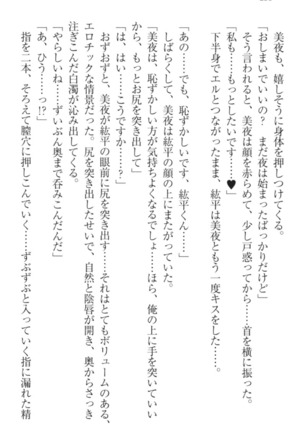 美夜も、嬉しそうに身体を押しつけてくる。
「おしまいでいいの？　まだ夜は始まったばっかりだけど」
そう言われると、美夜は顔を赤らめて、少し戸惑ってから……首を横に振った。
「私も……もっとしたいです……♥」
下半身でエルとつながったまま、紘平は美夜ともう一度キスをした……。
「あの……でも、恥ずかしいです、紘平くん……」
しばらくして、美夜は紘平の顔の上にまたがっていた。
「美夜は、恥ずかしい方が気持ちよくなるでしょ……ほら、俺の上に手を突いていい
から、もっとお尻を突き出して」
「は、はい……こうですか……？」
おずおずと、美夜が紘平の眼前に尻を突き出す……それはとてもボリュームのある、
エロチックな情景だった。尻を突き出したせいで、自然と陰唇が開き、奥からさっき
注ぎこんだ白濁が沁み出してくる。
「やらしいね……ずいぶん奥まで呑みこんだんだ」
「あ、ひう……っ!?」
指を二本、そろえて膣穴に押しこんでいく……ずぶずぶと入っていく指に漏れた精